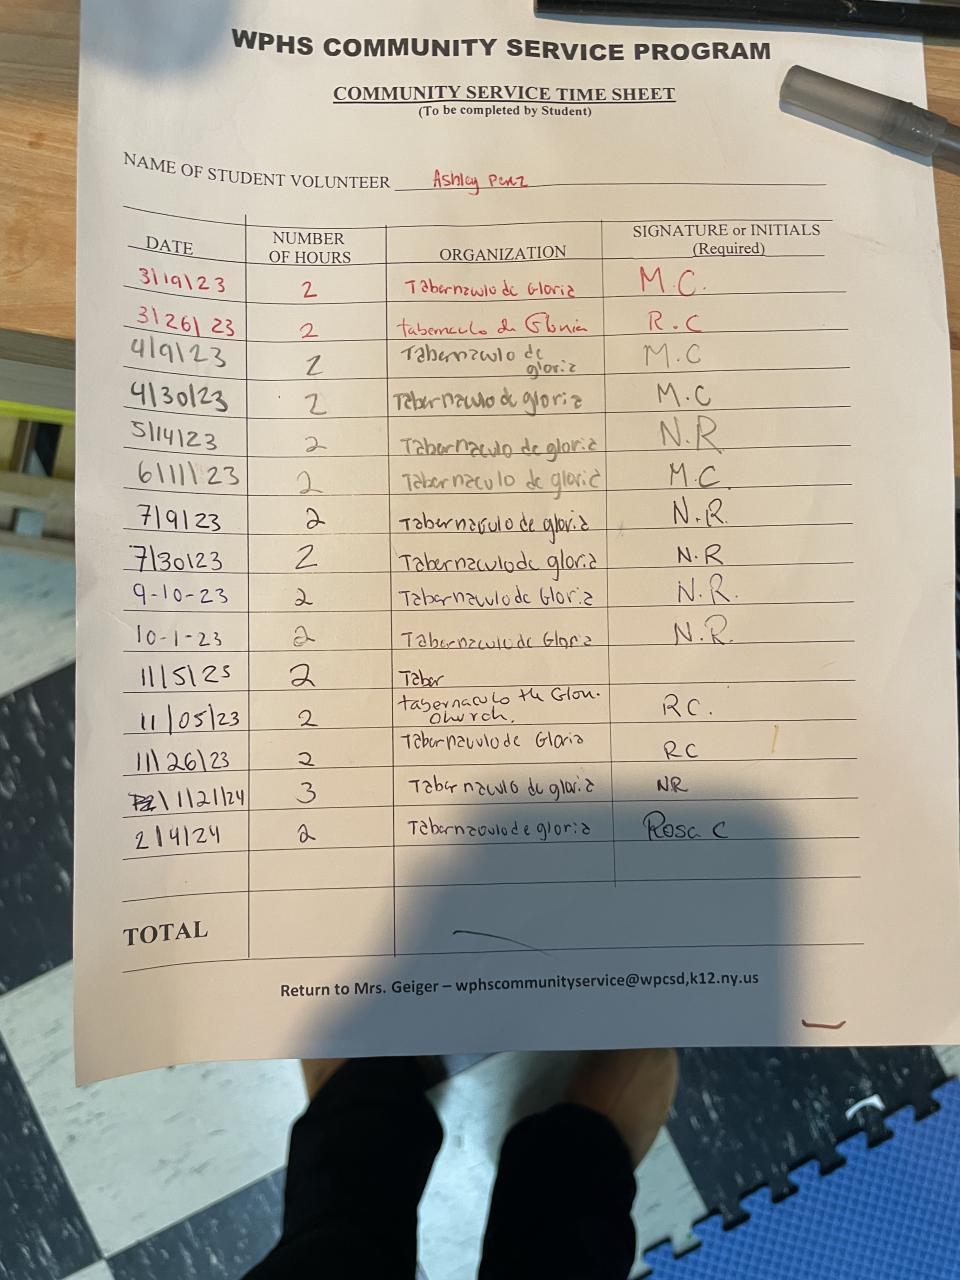 WPHS COMMUNITY SERVICE PROGRAM
COMMUNITY SERVICE TIME SHEET
(To be completed by Student)
NAME OF STUDENT VOLUNTEER Ashley Perez
DATE NUMBER OF HOURS ORGANIZATION SIGNATURE or INITIALS (Required)
3/19/23 2 Tabernaculo de Gloria M.C.
3/26/23 2 tabernaculo de Gloria R.C
4/9/23 2 Tabernaculo de gloria M.C
4/30/23 2 Tabernaculo de gloria M.C
5/14/23 2 Tabernaculo de gloria N.R
6/11/23 2 Tabernaculo de gloria M.C.
7/9/23 2 Tabernaculo de gloria N.R.
7/30/23 2 Tabernaculo de gloria N.R
9-10-23 2 Tabernaculo de Gloria N.R.
10-1-23 2 Tabernaculo de Gloria N.R.
11/5/23 2 Taber
11/05/23 2 tabernaculo Church. RC.
11/26/23 2 Tabernaculo de Gloria RC
1/21/24 3 Tabernaculo de gloria NR
2/4/24 2 Tabernaculo de gloria Rosa C
TOTAL
Return to Mrs. Geiger – wphscommunityservice@wpcsd,k12.ny.us